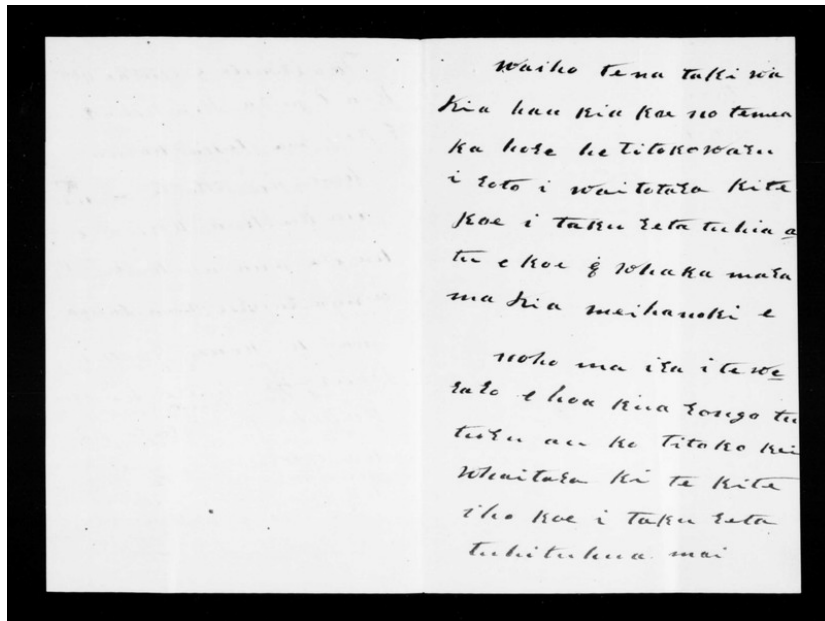 waiho tena taki wa
kia hau kia koe no temea
ka hoṟe he Titokowaru
i roto i waitotara kite
koe i taku reta tuhia a
tu e koe whaka mara
ma kia meihanoki e
noho ma ira i te we
raro e hoa kua rongo tu
turu au ko Titoko kei
Whaitara ki te kite
iho koe i taku reta
tuhituhua mai